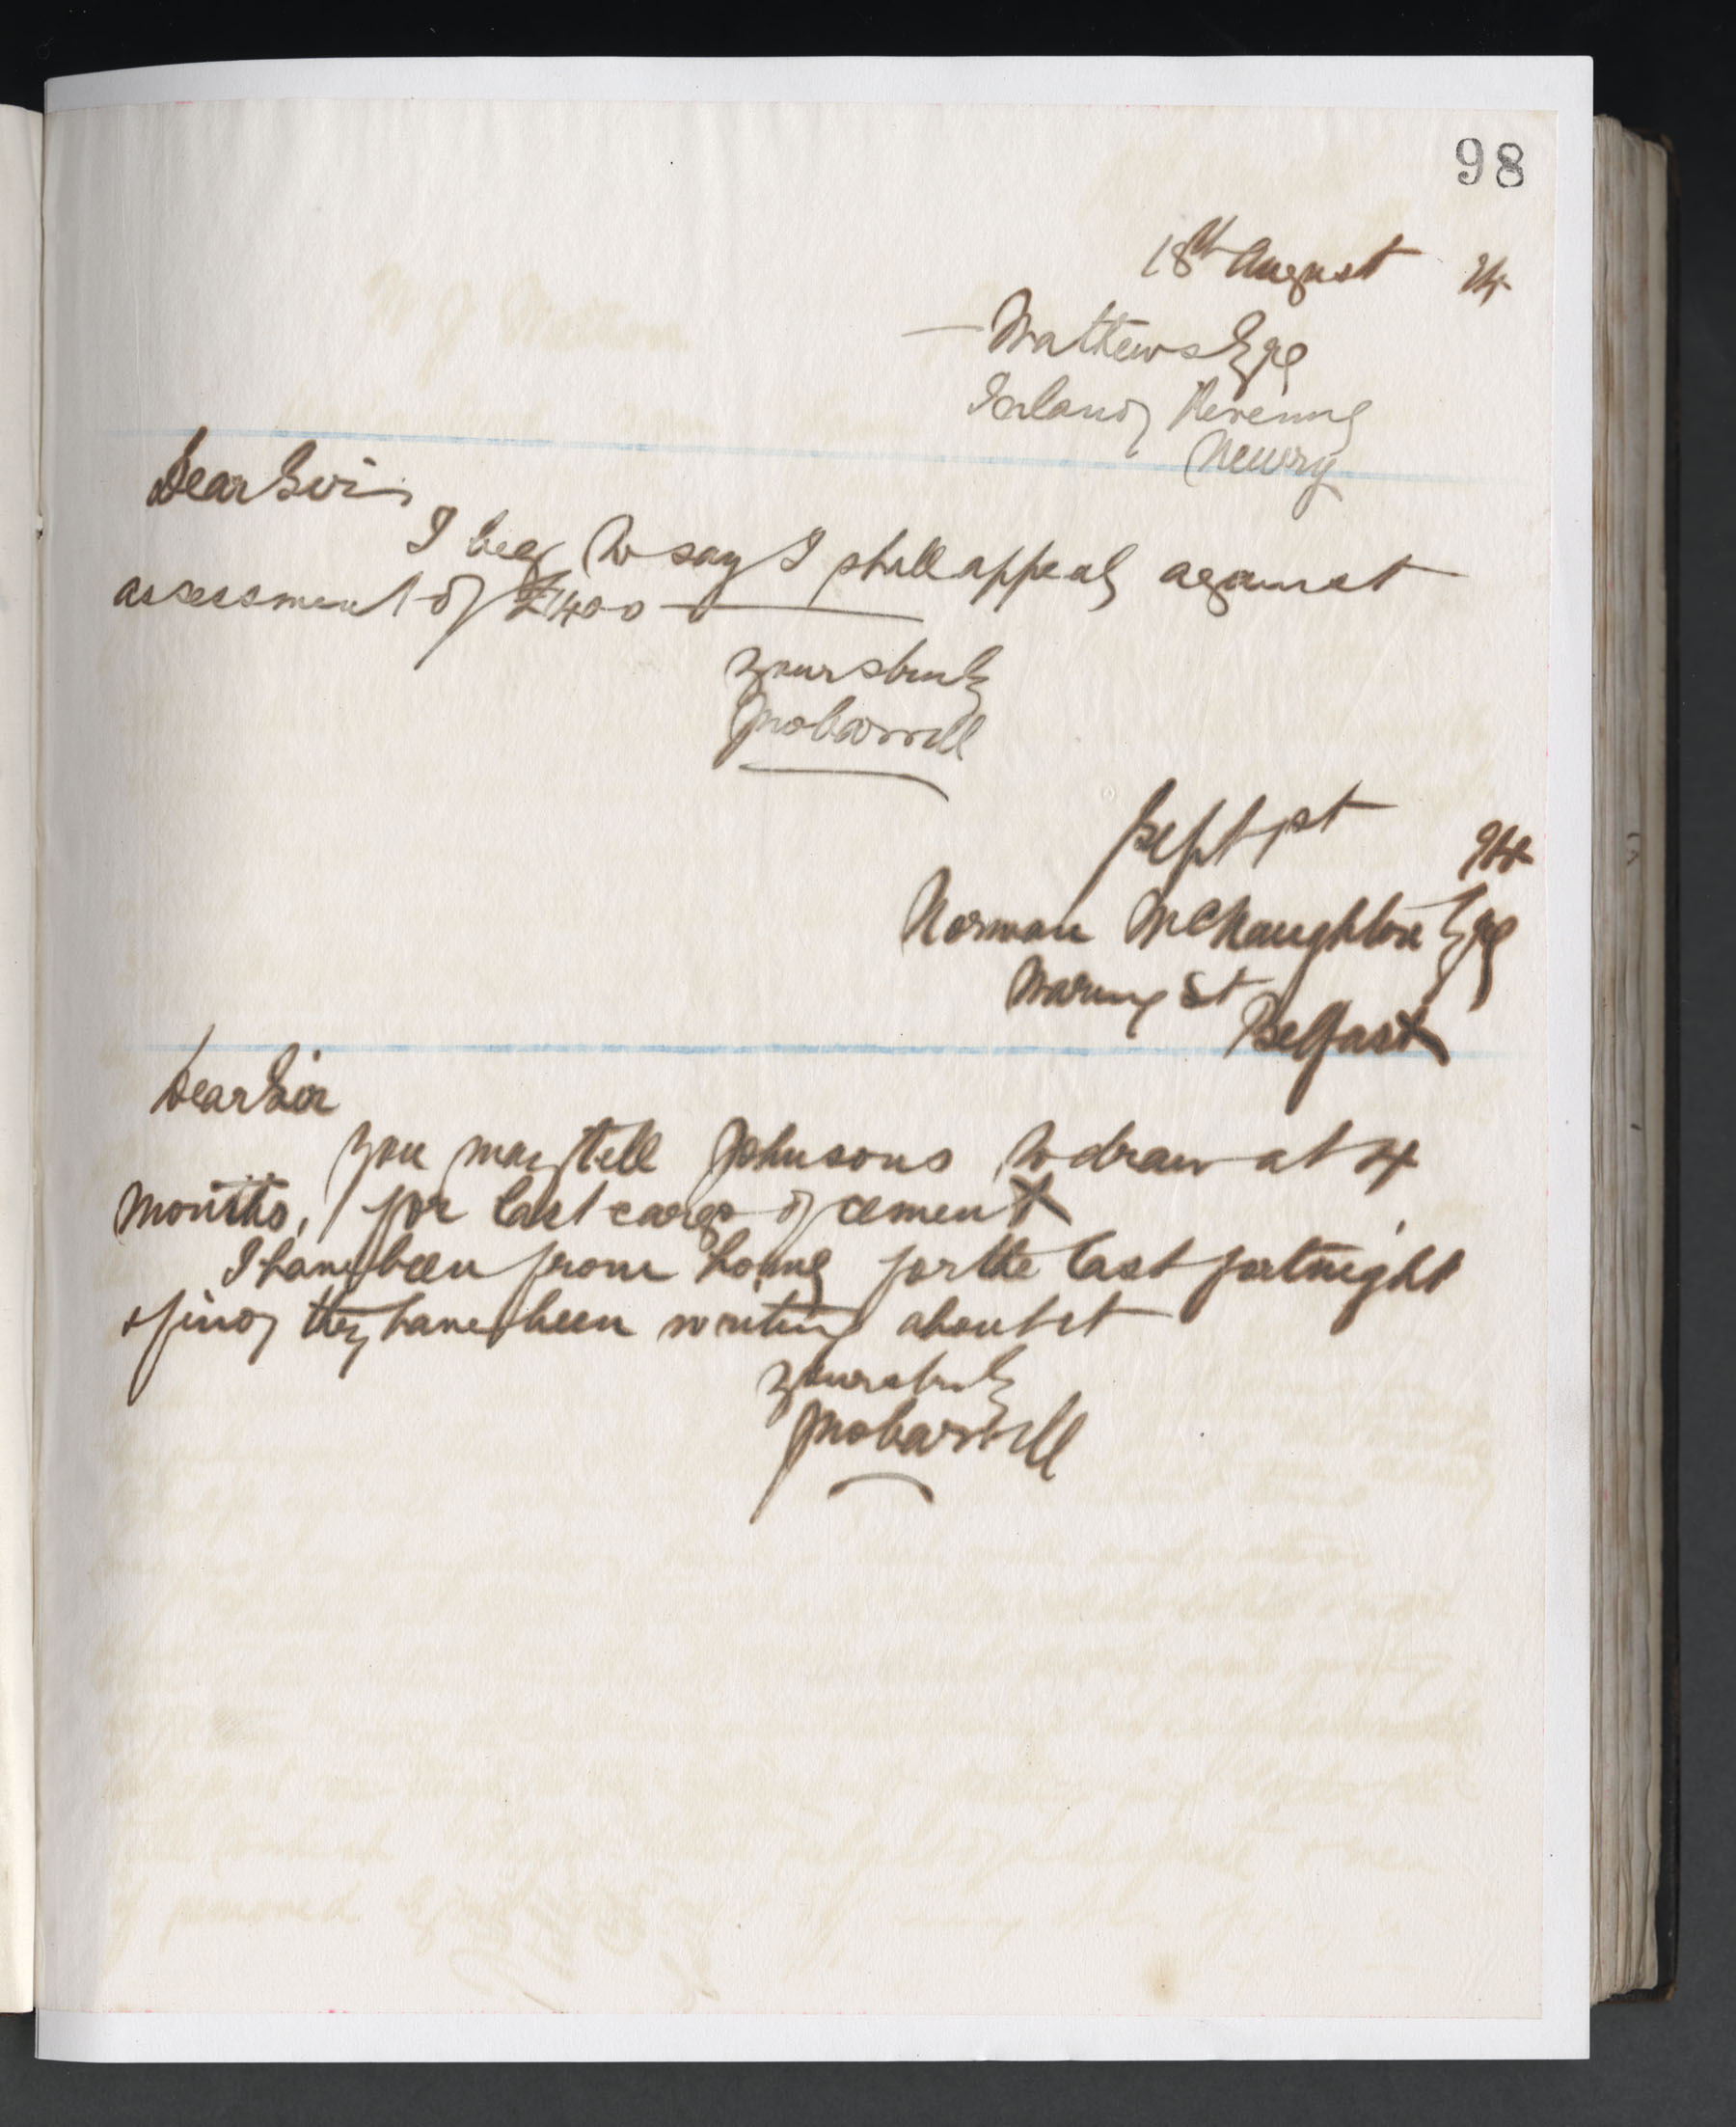 98
18th August 94
— Matthews Esqe
Inland Revenue
Newry
Dear Sir,
I beg to say I shall appeal against
assessment of £400
yours truly
Jno Carvill
Sept 1st 94
Norman McNaughton Esqe
Waring St
Belfast
Dear Sir
you may tell Johnsons to draw at 4
months, for last cargo of cement
I have been from home for the last fortnight
& find they have been writing about it
yours truly
Jno Carvill